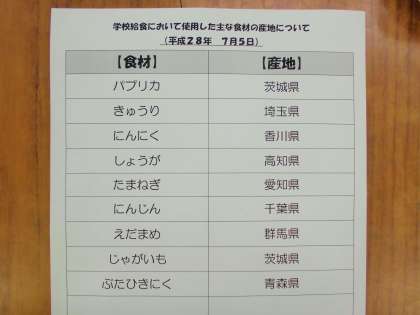 学校給食において使用した主な食材の産地について
（平成２８年　７月５日）
【食材】 【産地】
パプリカ 茨城県
きゅうり 埼玉県
にんにく 香川県
しょうが 高知県
たまねぎ 愛知県
にんじん 千葉県
えだまめ 群馬県
じゃがいも 茨城県
ぶたひきにく 青森県